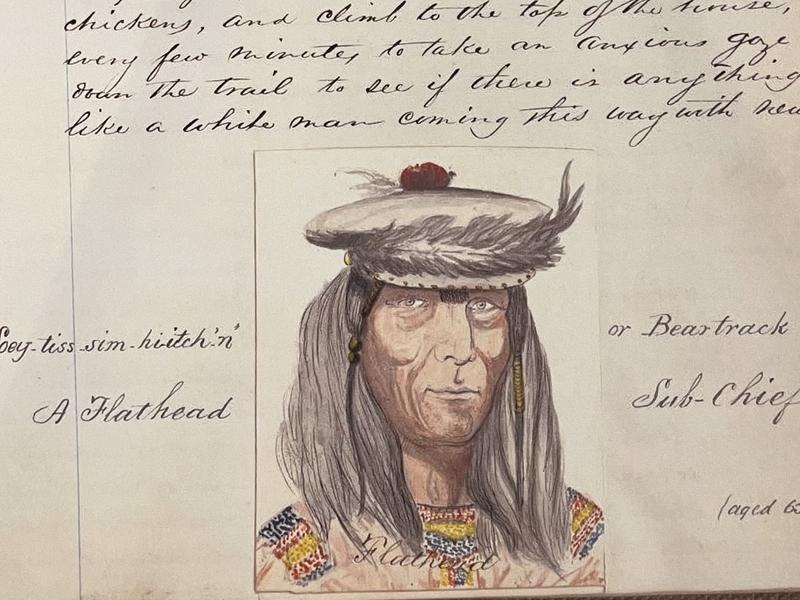 chickens, and climb to the top of the house,
every few minutes to take an anxious gaze
down the trail to see if there is anything
like a white man coming this way with
tiss-sim-hi-itch'-n' or Beartrack
A Flathead Sub-Chief
(aged
Flathead